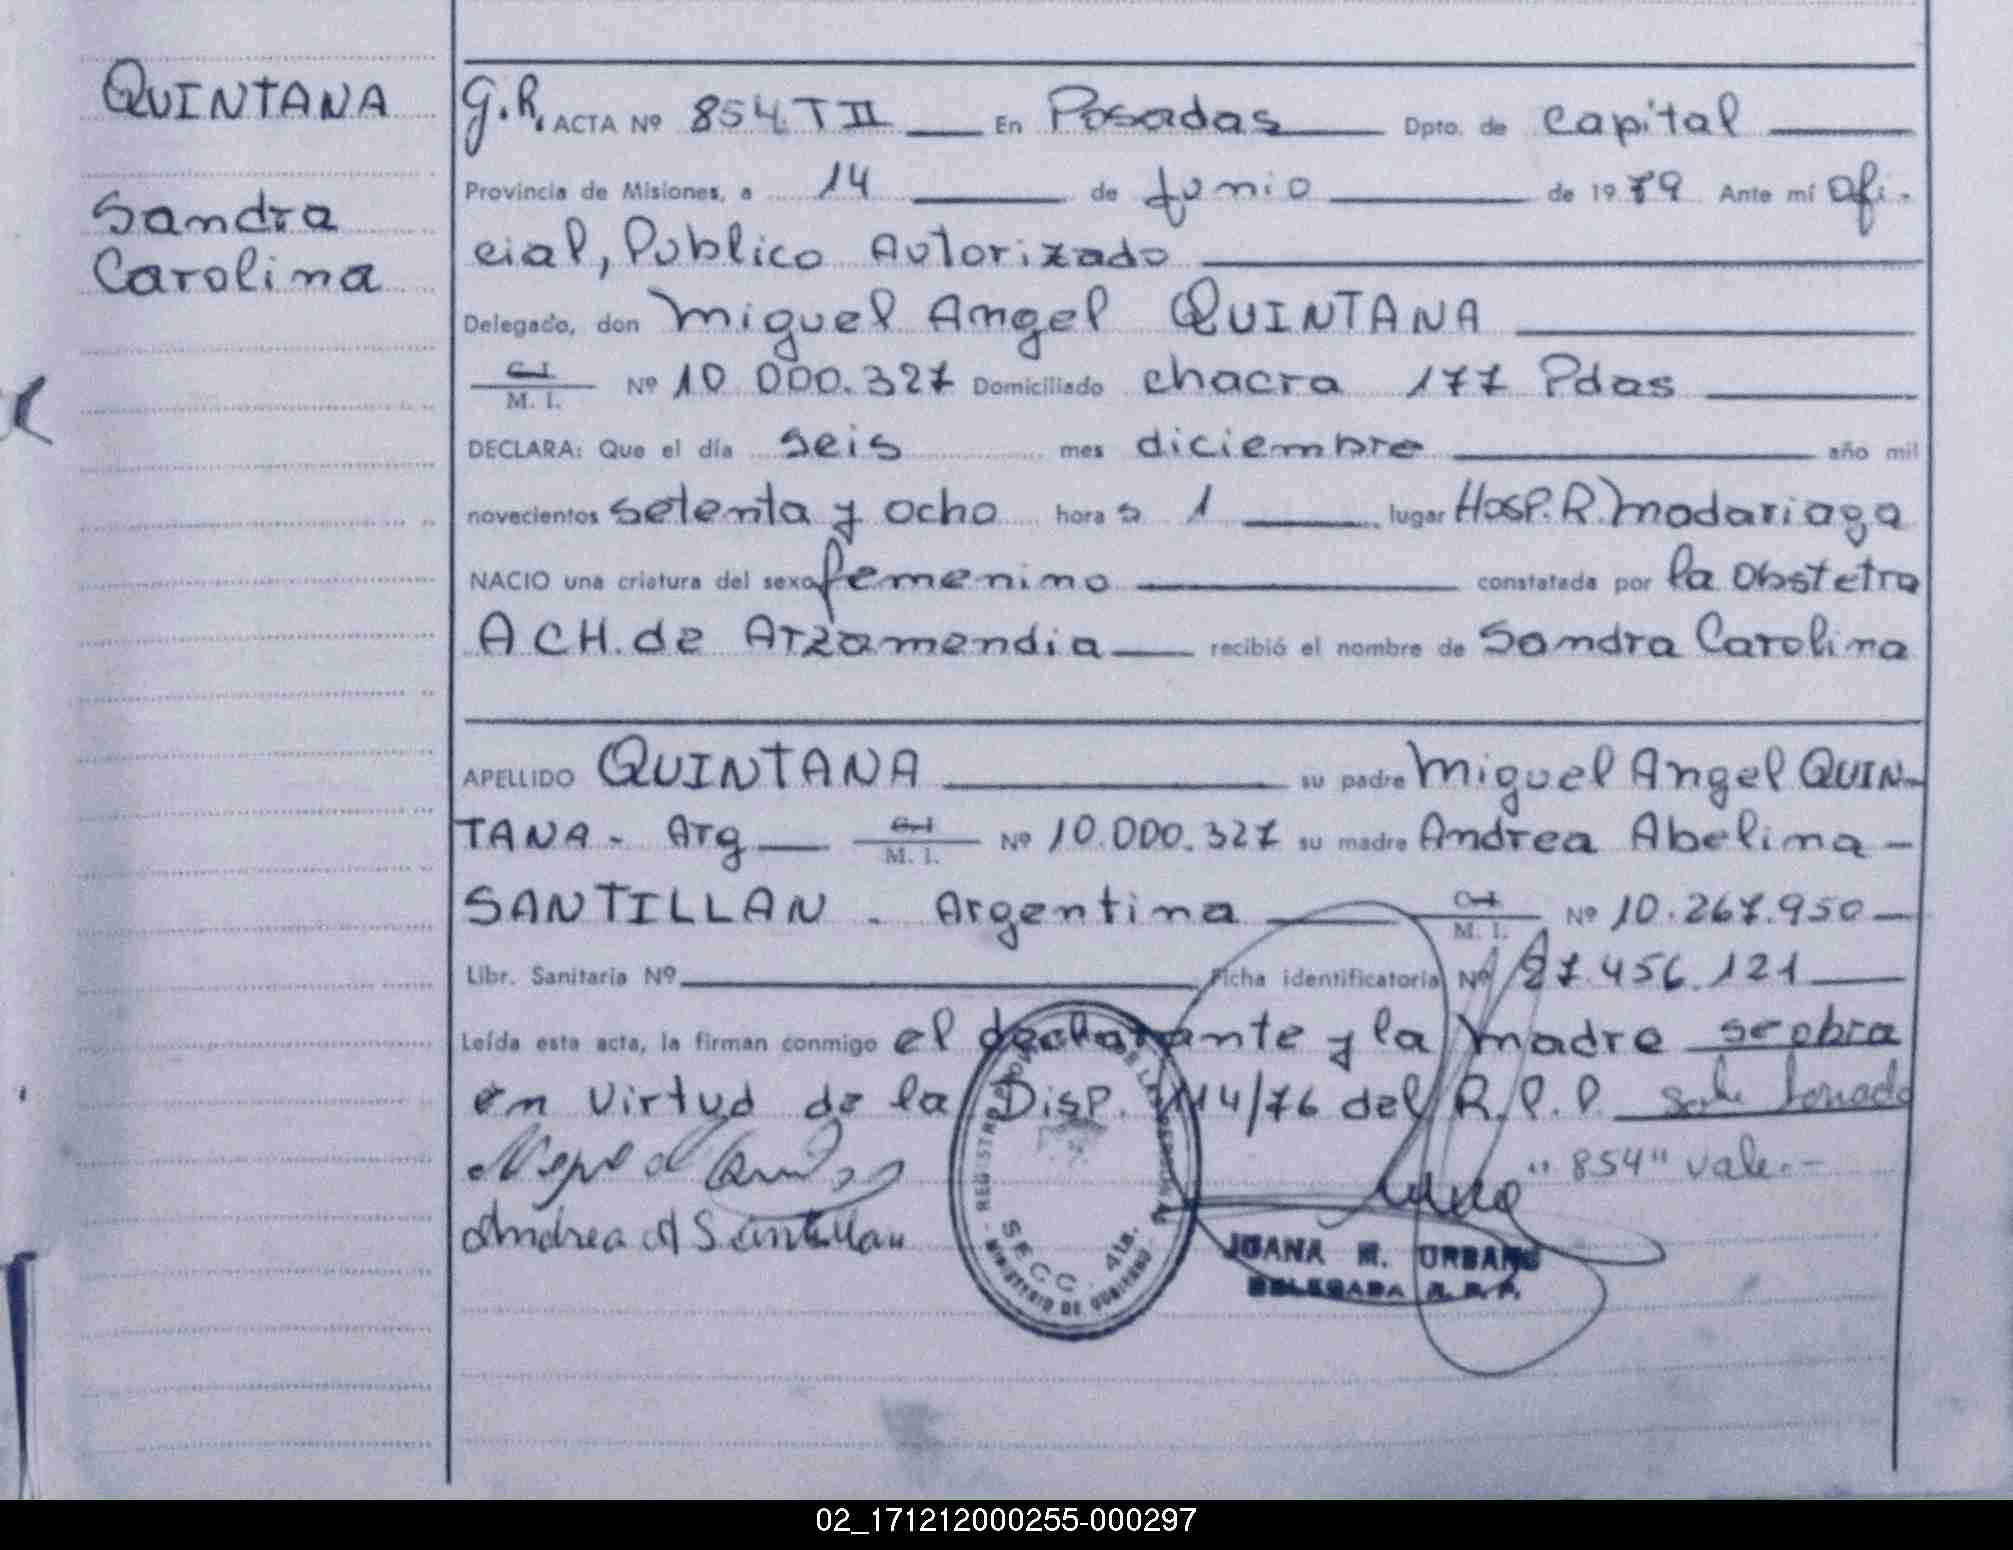 QUINTANA
Sandra
Carolina
G.R. ACTA Nº 854 T II En Posadas Dpto. de Capital
Provincia de Misiones, a 14 de Junio de 1979 Ante mí Ofi-
cial, Publico Autorizado
Delegado, don Miguel Angel QUINTANA
C.I. M. I. Nº 10 000.327 Domiciliado chacra 177 Pdas
DECLARA: Que el día seis mes diciembre año mil
novecientos setenta y ocho hora s 1 lugar Hosp. R. Madariaga
NACIO una criatura del sexo femenino constatada por la Obstetra
A CH. de Arzamendia recibió el nombre de Sandra Carolina
APELLIDO QUINTANA su padre Miguel Angel QUIN-
TANA - Arg C.I. M. I. Nº 10.000.327 su madre Andrea Abelina -
SANTILLAN - Argentina C.I. M. I. Nº 10.267.950
Libr. Sanitaria Nº Ficha identificatoria Nº 27.456.121
Leída esta acta, la firman conmigo el declarante y la madre se obra
en virtud de la Disp. 114/76 del R.P.P.
"854" vale.-
Andrea A Santillan
REGISTRO PROVINCIAL DE LAS PERSONAS
SECC. 4ta.
MINISTERIO DE GOBIERNO
JUANA M. URBANO
DELEGADA R.P.P.
02_171212000255-000297